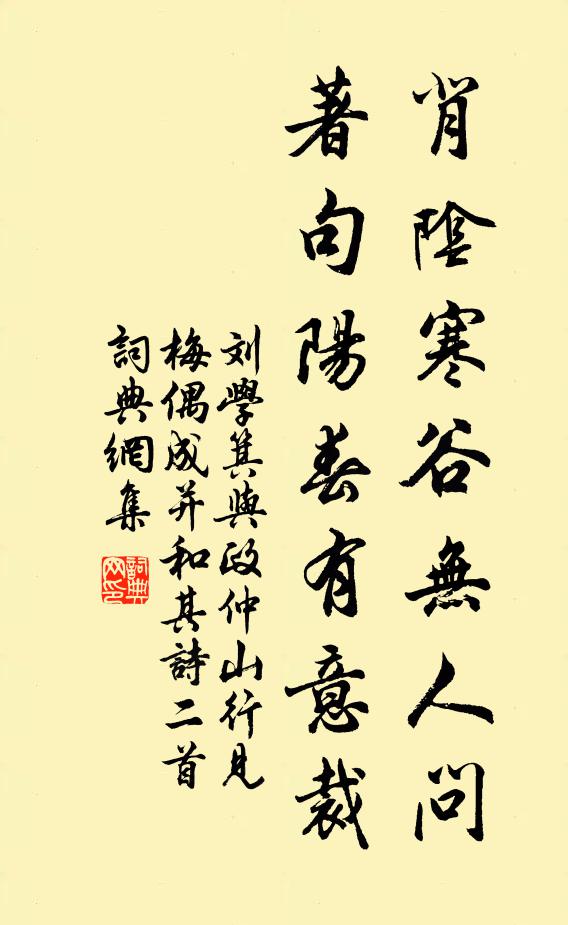 背陰寒谷無人問
著句陽春有意裁
刘學箕與政仲山行見
梅偶成并和其詩二首
詞典網集
詞典网印